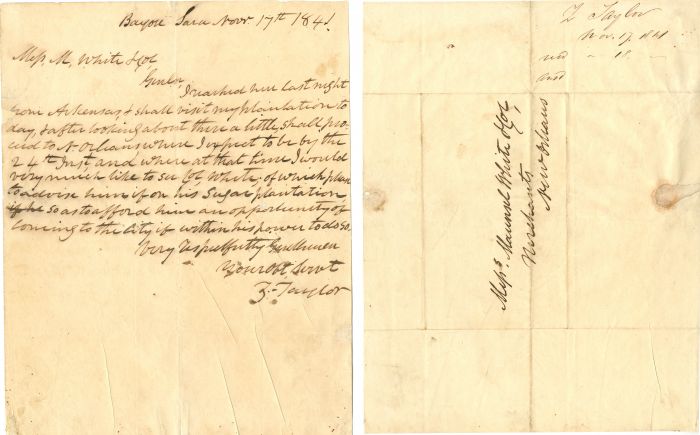 Bayou Sara Novr. 17th 1841
Messrs. M. White & Co,
Gentn,
I reached here last night
from Arkansas, & shall visit my plantation to
day, & after looking about there a little, shall pro-
ceed to N. Orleans where I expect to be by the
24th Inst and where at that time I would
very much like to see Col. White; of which please
to advise him if on his sugar plantation
if he so as to afford him an opportunity of
coming to the City if within his power to do so.
Very respectfully Gentlemen
Your Obt. Servt
Z. Taylor
Z Taylor
Nov. 17 1841
recd " 18. "
ansd
Messrs Maunsel White & Co,
Merchants
New Orleans